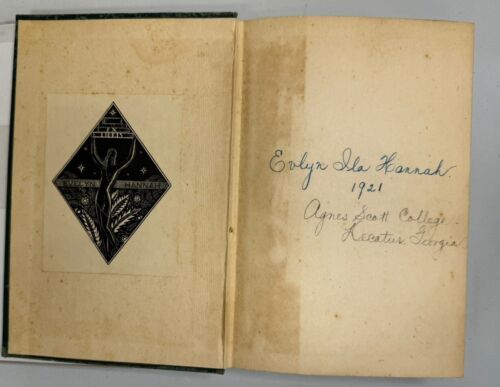 EX
LIBRIS
EVELYN HANNAH
Evlyn Ila Hannah
1921
Agnes Scott College
Decatur, Georgia